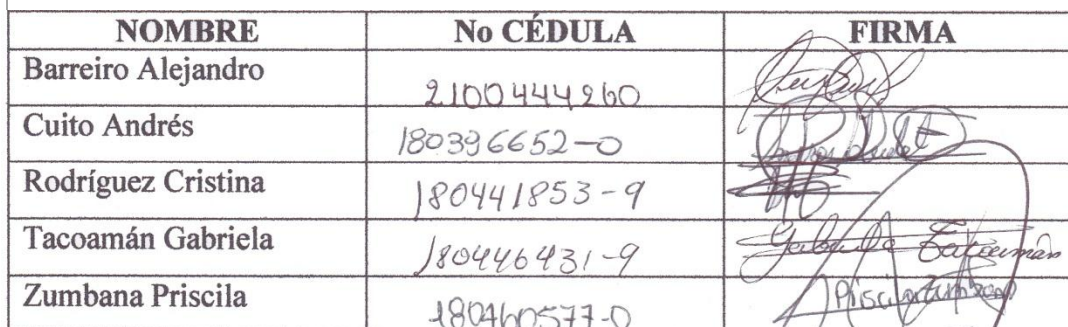 NOMBRE No CÉDULA FIRMA
Barreiro Alejandro 2100444260
Cuito Andrés 180396652-0
Rodríguez Cristina 180441853-9
Tacoamán Gabriela 180446431-9 Gabriela Tacoamán
Zumbana Priscila 180460577-0 Priscila Zumbana